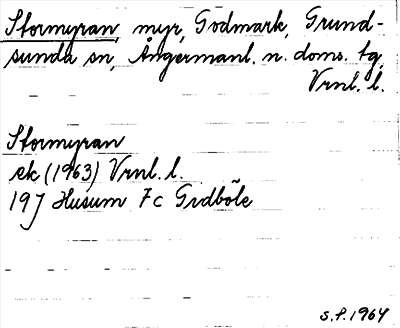 Stormyran, myr, Godmark, Grund-
sunda sn, Ångermanl. n. doms. tg,
Vrnl. l.
Stormyran
ek (1963) Vrnl. l.
19J Husum 7c Gidböle
S.F. 1964